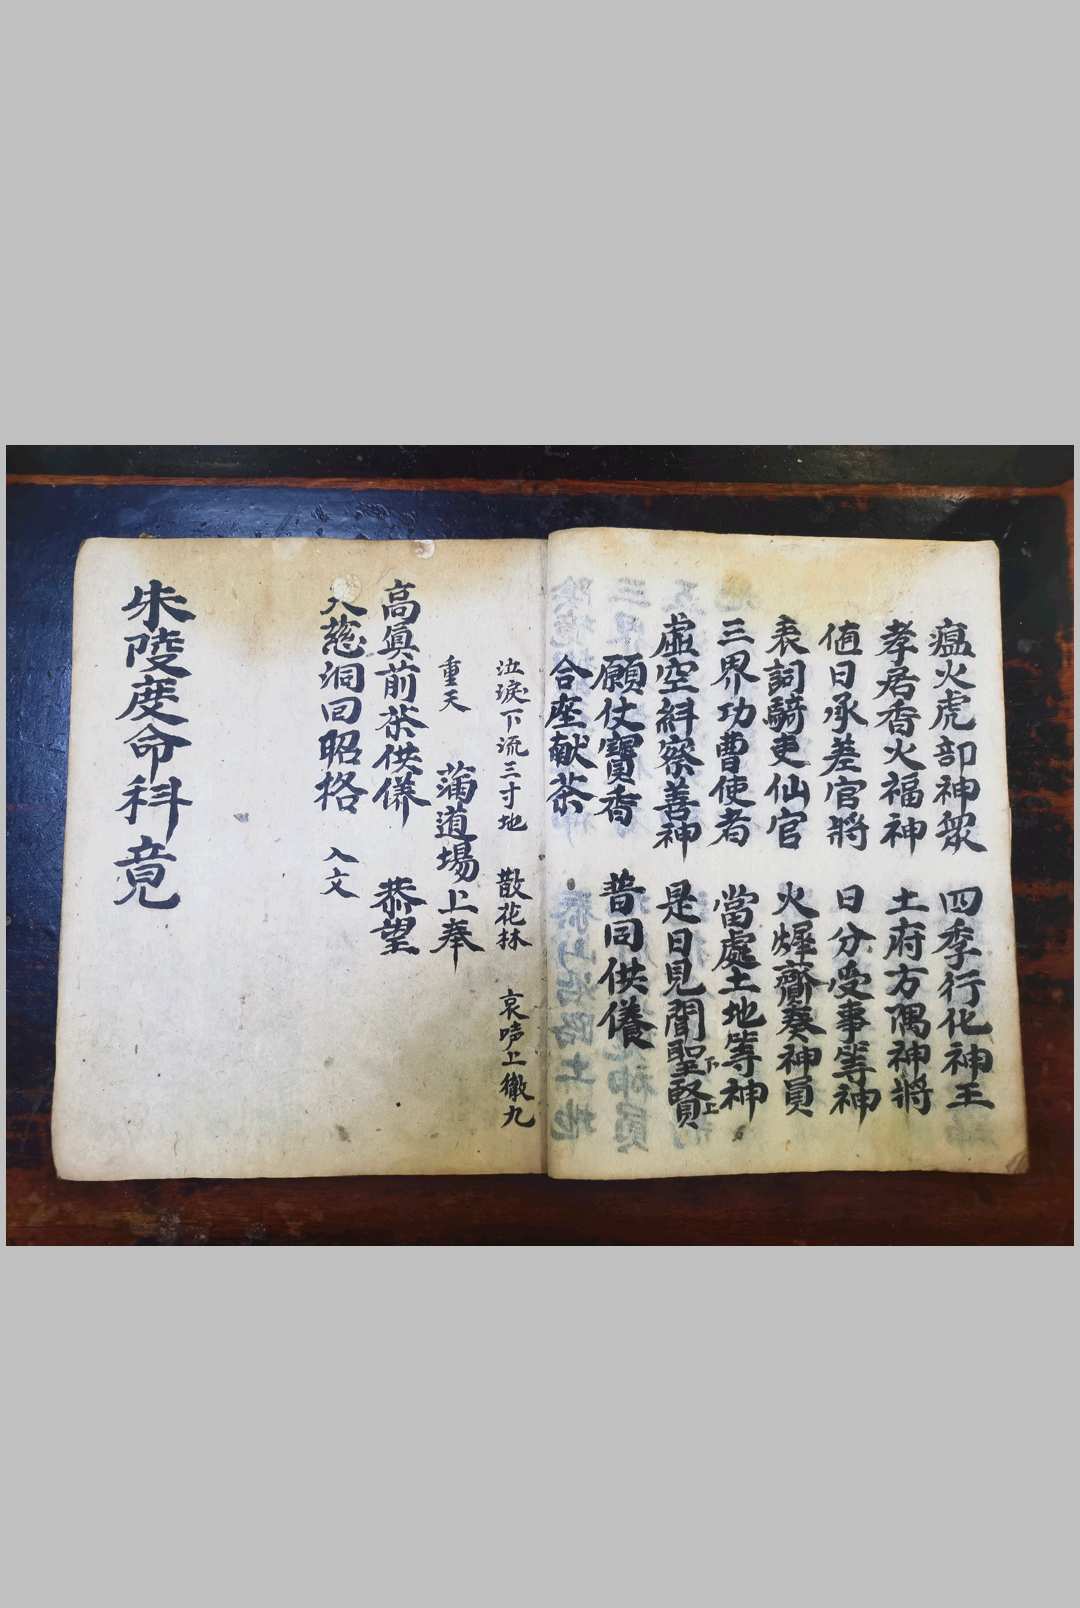 瘟火虎部神眾 四季行化神王
孝居香火福神 土府方隅神將
值日承差官將 日分受事等神
表詞騎吏仙官 火燁齎奏神員
三界功曹使者 當處土地等神
虛空糾察善神 是日見聞聖賢下上
願仗寶香 普同供養
合座献茶
泣淚下流三寸地 散花林 哀啼上徹九
重天 滿道場上奉
高眞前茶供養 恭望
大慈洞回昭格 入文
朱陵度命科竟